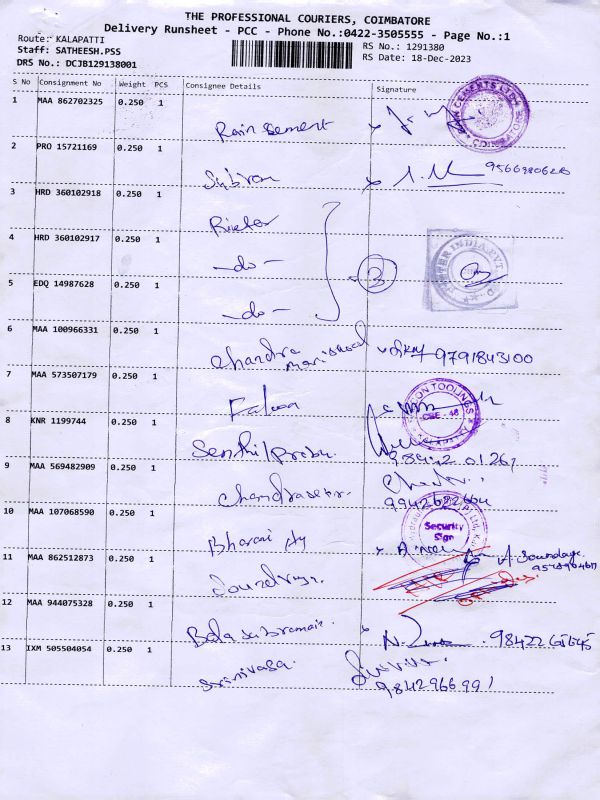 THE PROFESSIONAL COURIERS, COIMBATORE
Delivery Runsheet - PCC - Phone No.:0422-3505555 - Page No.:1
Route: KALAPATTI
RS No.: 1291380
Staff: SATHEESH.PSS
RS Date: 18-Dec-2023
DRS No.: DCJB129138001
S No Consignment No Weight PCS Consignee Details Signature
1 MAA 862702325 0.250 1
Rain cement
2 PRO 15721169 0.250 1
3 HRD 360102918 0.250 1
Rieter
4 HRD 360102917 0.250 1
-do-
3
5 EDQ 14987628 0.250 1
-do-
6 MAA 100966331 0.250 1
Chandra
9791843100
7 MAA 573507179 0.250 1
CON TOOLINGS
CBE
8 KNR 1199744 0.250 1
Senthil prabu
9 MAA 569482909 0.250 1
Chandrasekr.
9942622604
10 MAA 107068590 0.250 1
Security
Sign
Bharani
11 MAA 862512873 0.250 1
A. Soundarya.
12 MAA 944075328 0.250 1
Bala subramani.
9842265645
13 IXM 505504054 0.250 1
Srinivasa.
9842966991